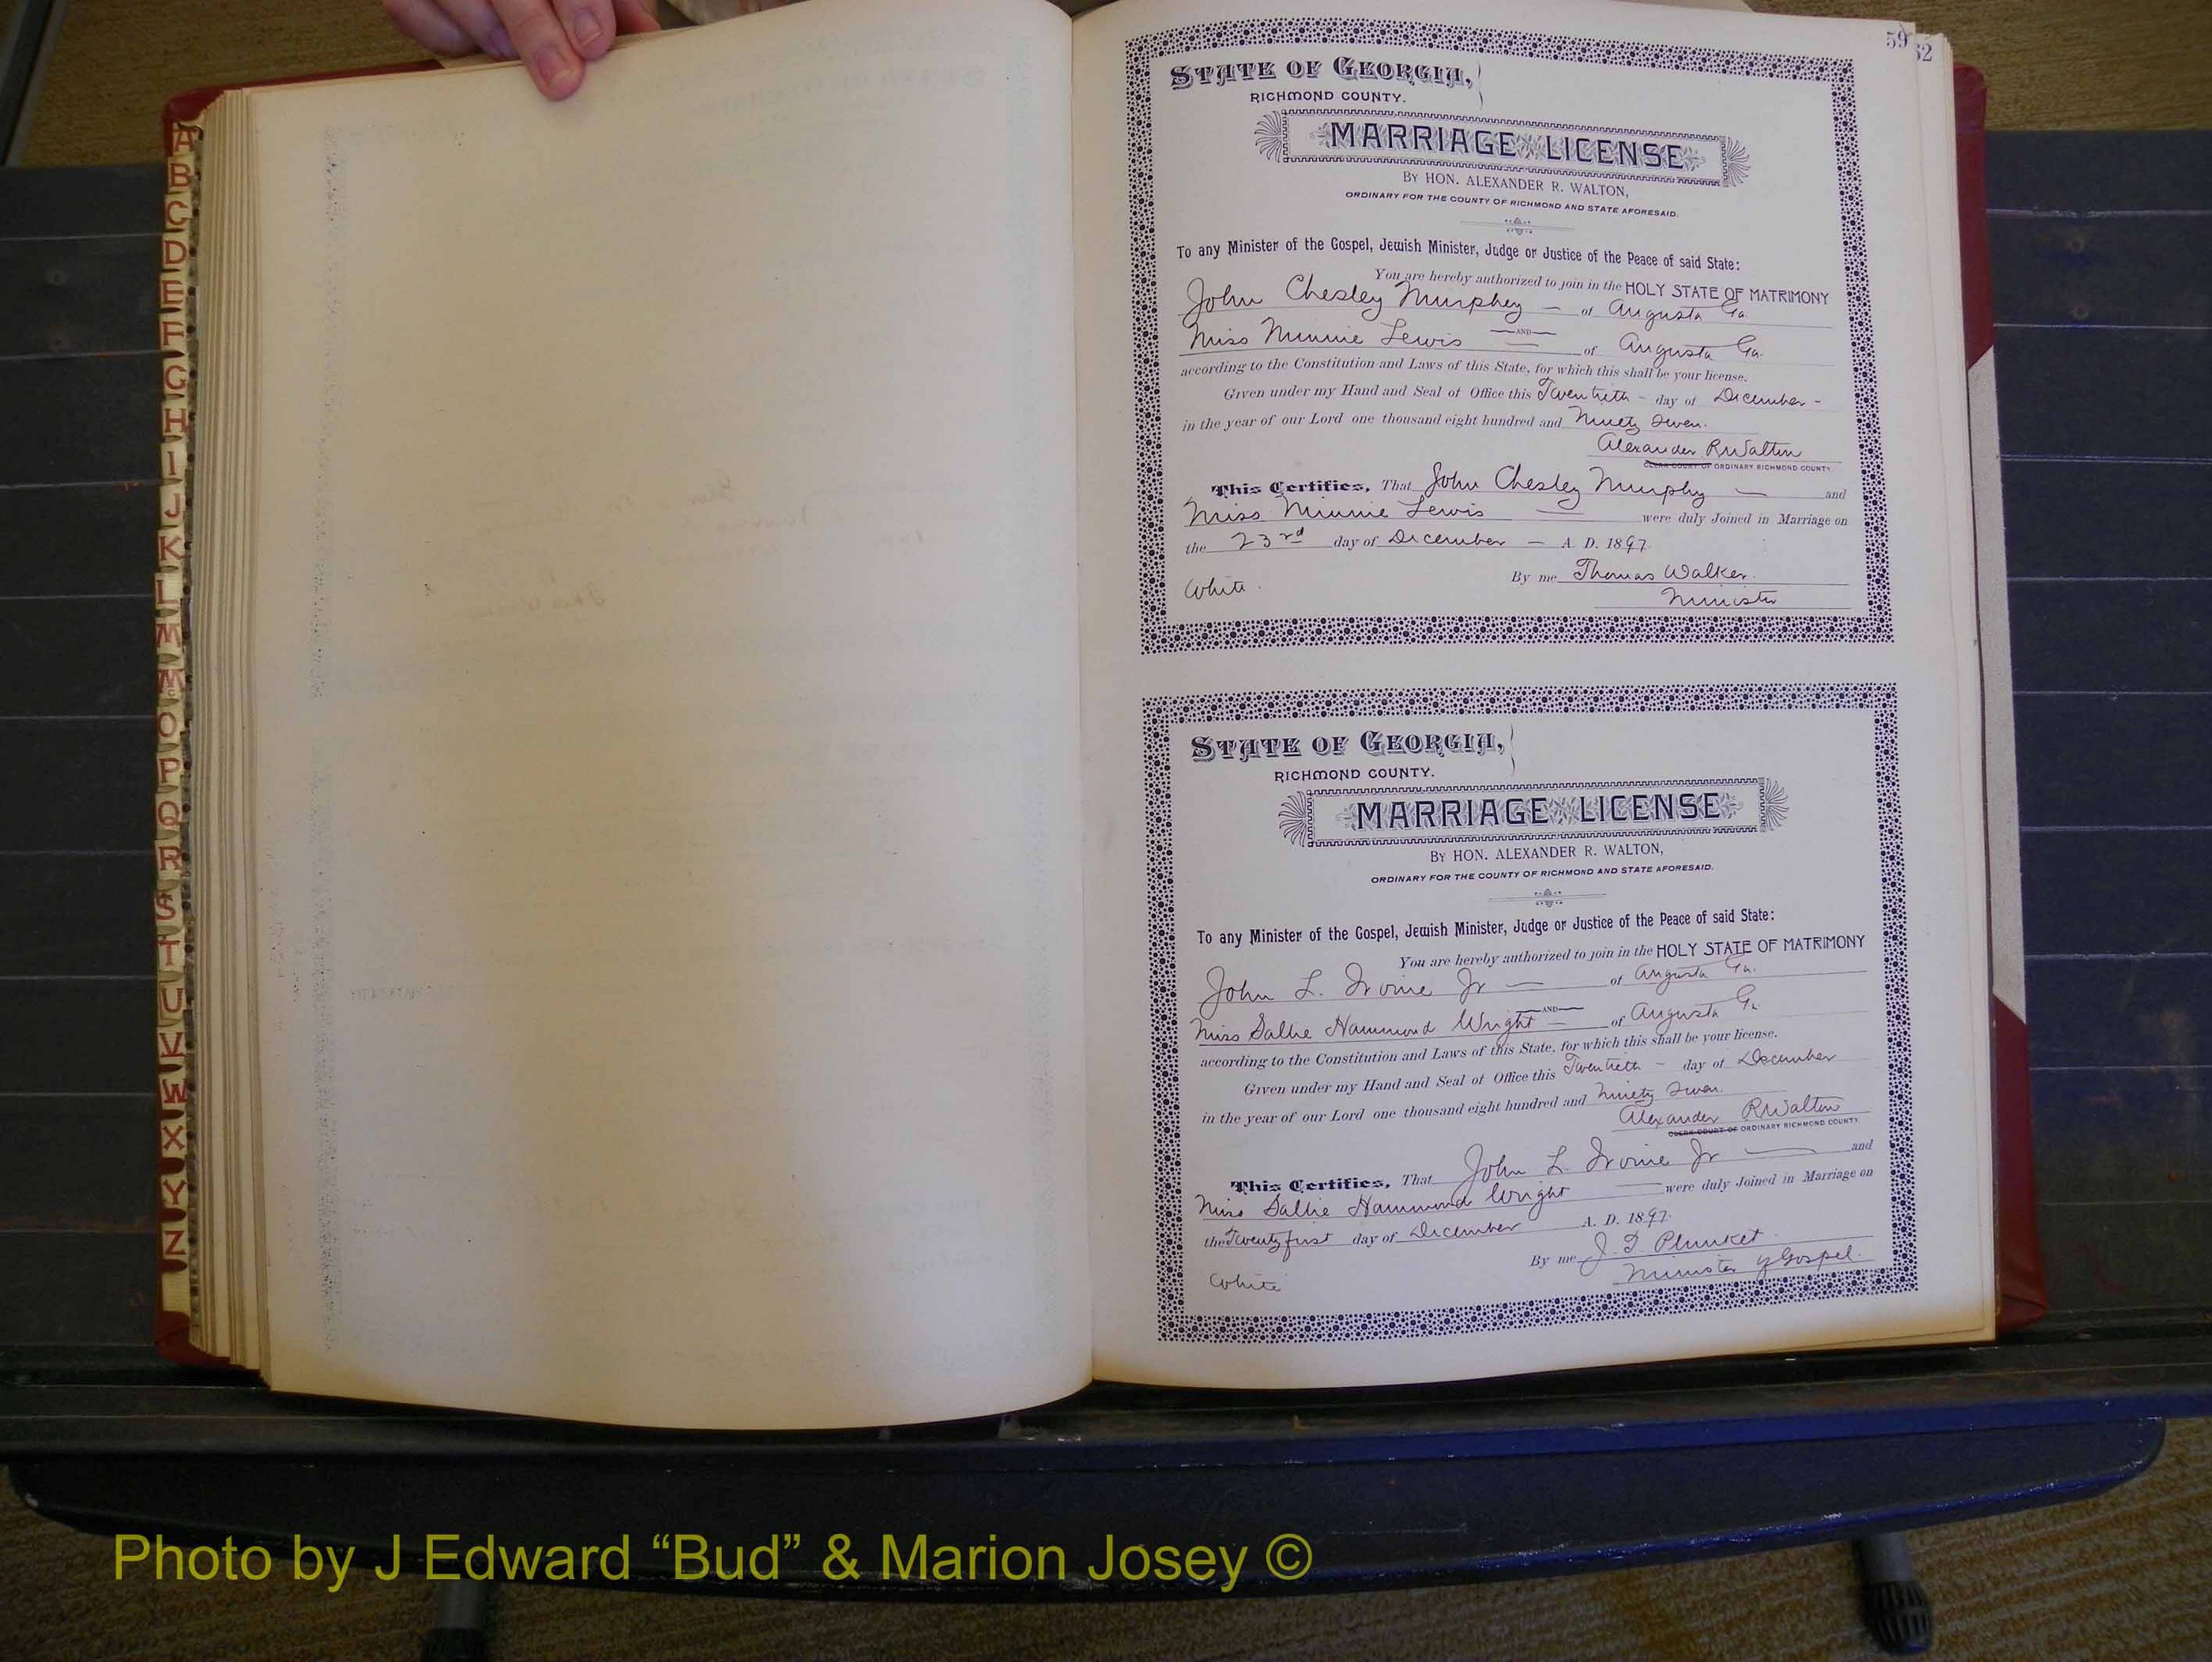 A
B
C
D
E
F
G
H
I
J
K
L
M
Mc
O
P
Q
R
S
T
U
V
W
X
Y
Z
59
62
STATE OF GEORGIA,
RICHMOND COUNTY.
MARRIAGE LICENSE
BY HON. ALEXANDER R. WALTON,
ORDINARY FOR THE COUNTY OF RICHMOND AND STATE AFORESAID.
To any Minister of the Gospel, Jewish Minister, Judge or Justice of the Peace of said State:
You are hereby authorized to join in the HOLY STATE OF MATRIMONY
John Chesley Murphey — of Augusta Ga.
—AND—
Miss Minnie Lewis — of Augusta Ga.
according to the Constitution and Laws of this State, for which this shall be your license.
Given under my Hand and Seal of Office this Twentieth - day of December -
in the year of our Lord one thousand eight hundred and Ninety Seven.
Alexander R Walton
CLERK COURT OF ORDINARY RICHMOND COUNTY.
This Certifies, That John Chesley Murphy — and
Miss Minnie Lewis — were duly Joined in Marriage on
the 23rd day of December — A. D. 1897.
By me Thomas Walker.
White.
Minister
STATE OF GEORGIA,
RICHMOND COUNTY.
MARRIAGE LICENSE
BY HON. ALEXANDER R. WALTON,
ORDINARY FOR THE COUNTY OF RICHMOND AND STATE AFORESAID.
To any Minister of the Gospel, Jewish Minister, Judge or Justice of the Peace of said State:
You are hereby authorized to join in the HOLY STATE OF MATRIMONY
John L. Irvine Jr — of Augusta Ga.
—AND—
Miss Sallie Hammond Wright — of Augusta Ga
according to the Constitution and Laws of this State, for which this shall be your license.
Given under my Hand and Seal of Office this Twentieth - day of December
in the year of our Lord one thousand eight hundred and Ninety Seven.
Alexander R Walton
CLERK COURT OF ORDINARY RICHMOND COUNTY.
This Certifies, That John L. Irvine Jr — and
Miss Sallie Hammond Wright — were duly Joined in Marriage on
the Twenty first day of December A. D. 1897.
By me J. T. Plunket
White
Minister of Gospel.
Photo by J Edward “Bud” & Marion Josey ©